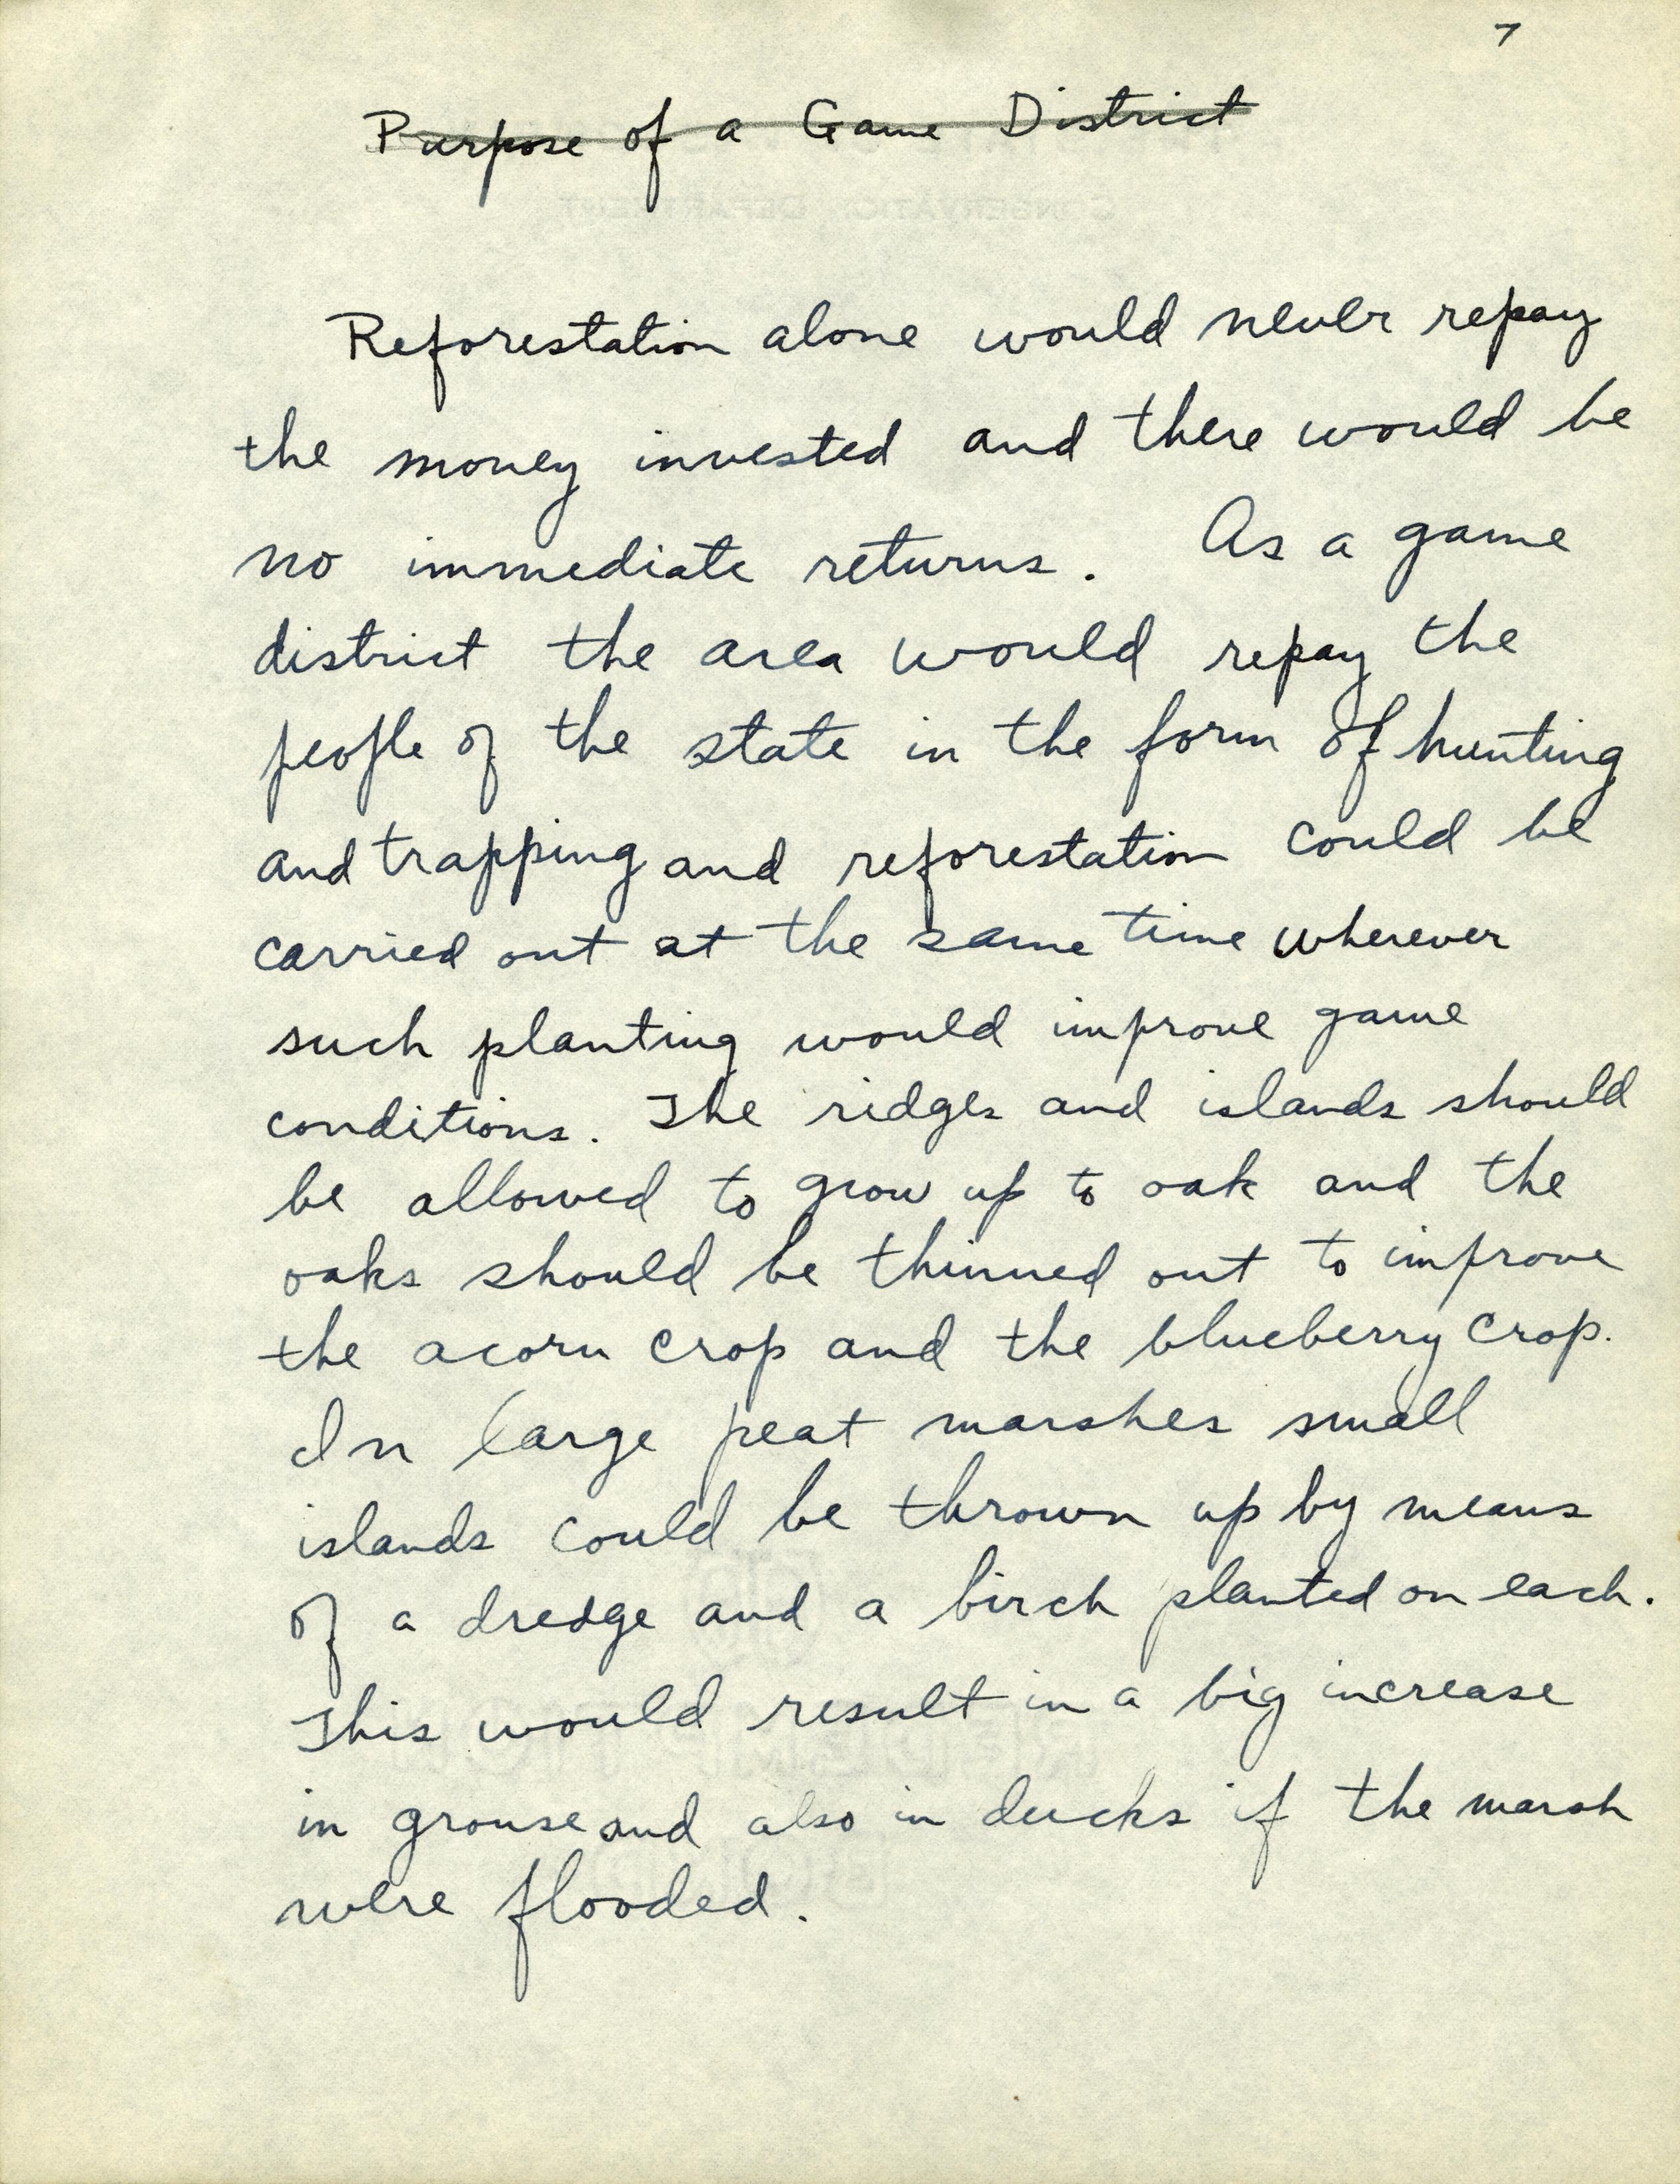 7
Purpose of a Game District
Reforestation alone would never repay
the money invested and there would be
no immediate returns. As a game
district the area would repay the
people of the state in the form of hunting
and trapping and reforestation could be
carried out at the same time wherever
such planting would improve game
conditions. The ridges and islands should
be allowed to grow up to oak and the
oaks should be thinned out to improve
the acorn crop and the blueberry crop.
In large peat marshes small
islands could be thrown up by means
of a dredge and a birch planted on each.
This would result in a big increase
in grouse and also in ducks if the marsh
were flooded.